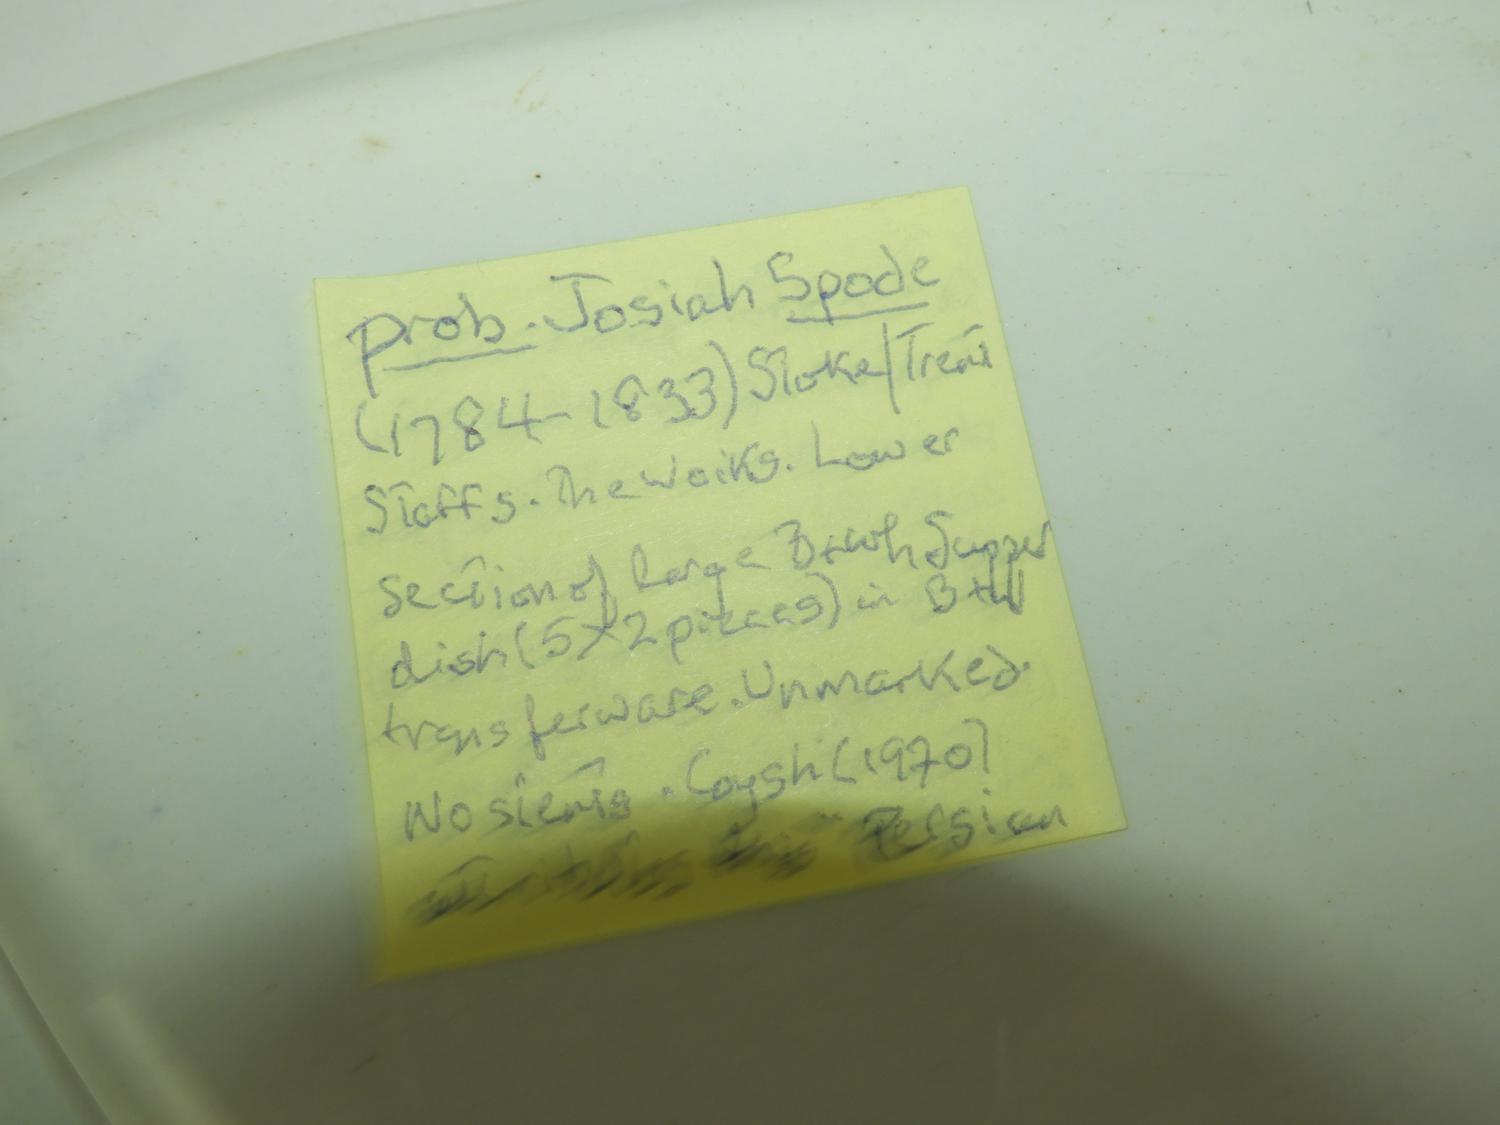 prob. Josiah Spode
(1784-1833) Stoke/Trent
Staffs. The Works. Lower
section of large B+wh Supper
dish (5x2 pieces) in B+W
transferware. Unmarked.
No stents. Coysh (1970)
Persian